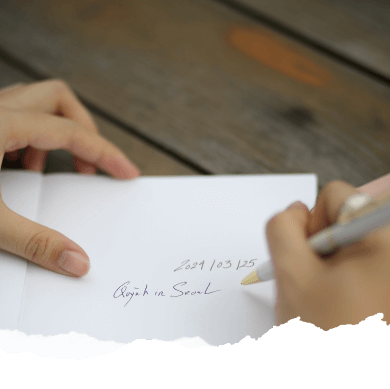 2024/03/25
Quỳnh in Seoul